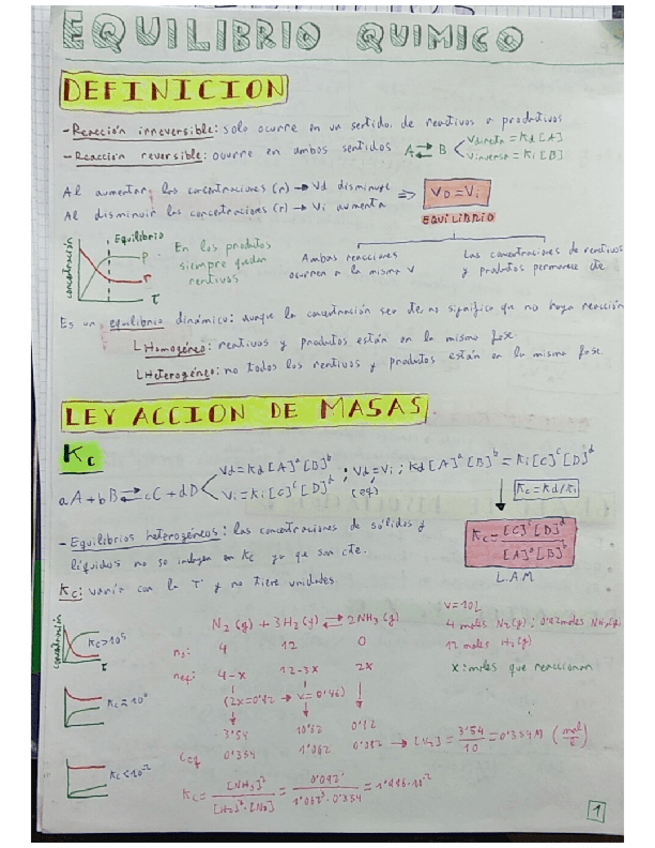 EQUILIBRIO QUIMICO
DEFINICION
- Reacción irreversible: solo ocurre en un sentido, de reactivos a productivos
- Reacción reversible: ocurre en ambos sentidos A ⇄ B Vdirecta = Kd [A]
Vinversa = Ki [B]
Al aumentar las concentraciones (r) → Vd disminuye ⇒ VD = Vi
Al disminuir las concentraciones (r) → Vi aumenta
EQUILIBRIO
concentración Equilibrio P r T
En los productos siempre quedan reactivos
Ambas reacciones ocurren a la misma V
Las concentraciones de reactivos y productos permanece cte
Es un equilibrio dinámico: aunque la concentración sea cte no significa que no haya reacción
Homogéneo: reactivos y productos están en la misma fase.
Heterogéneo: no todos los reactivos y productos están en la misma fase.
LEY ACCION DE MASAS
Kc
aA + bB ⇄ cC + dD
Vd = Kd [A]^a [B]^b
Vi = Ki [C]^c [D]^d
; Vd = Vi ; Kd [A]^a [B]^b = Ki [C]^c [D]^d
(eq)
Kc = Kd/Ki
- Equilibrios heterogéneos: las concentraciones de sólidos y
líquidos no se incluyen en Kc ya que son cte.
Kc = [C]^c [D]^d / [A]^a [B]^b
L.A.M
Kc: varía con la T y no tiene unidades
concentración Kc > 10^5 T
N2 (g) + 3H2 (g) ⇄ 2NH3 (g)
V = 10L
n0: 4 12 0
4 moles N2(g) ; 0'92 moles NH3(g)
12 moles H2(g)
neq: 4-x 12-3x 2x
x: moles que reaccionan
(2x = 0'92 → x = 0'46)
3'54 10'62 0'92
Ceq 0'354 1'062 0'092 → [N2] = 3'54/10 = 0'354M (mol/L)
Kc < 10^-2
Kc = [NH3]^2 / [H2]^3·[N2] = 0'092^2 / 1'062^3·0'354 = 1'996·10^-2
1